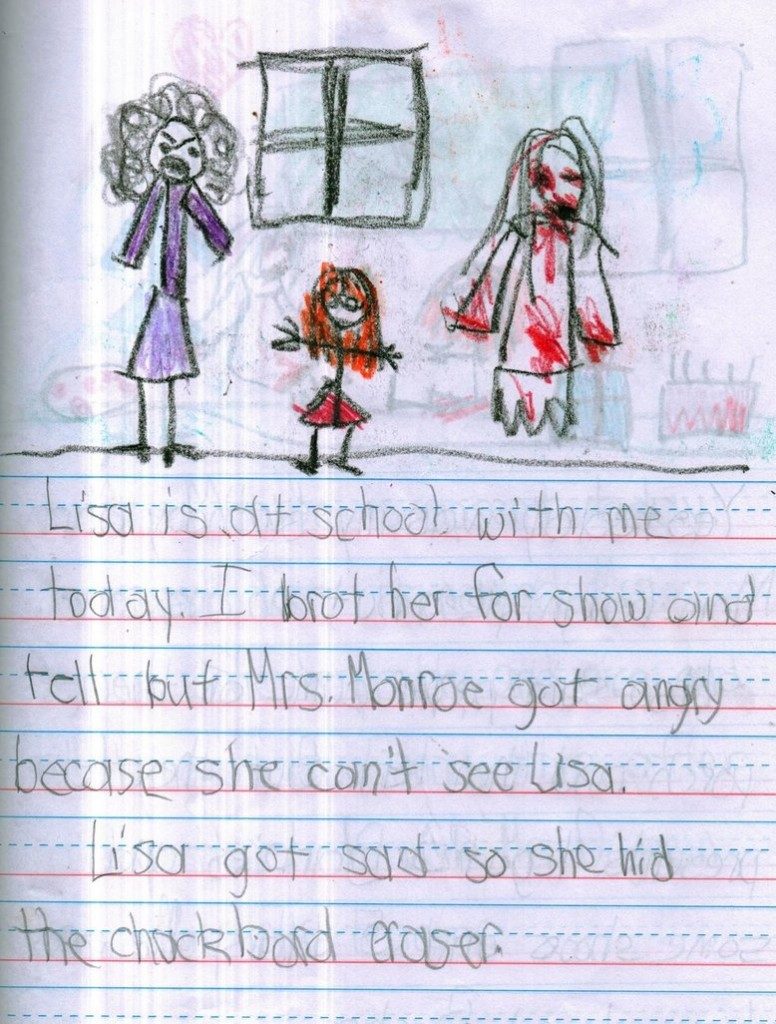 Lisa is at school with me
today. I brot her for show and
tell but Mrs. Monroe got angry
becase she can't see Lisa.
Lisa got sad so she hid
the chockbord eraser.